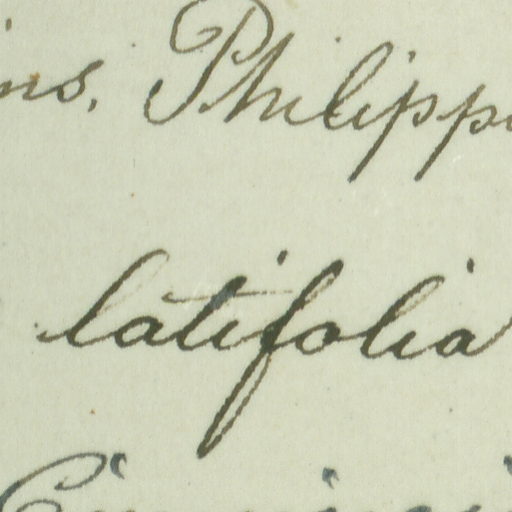 ins. Philippi
latifolia